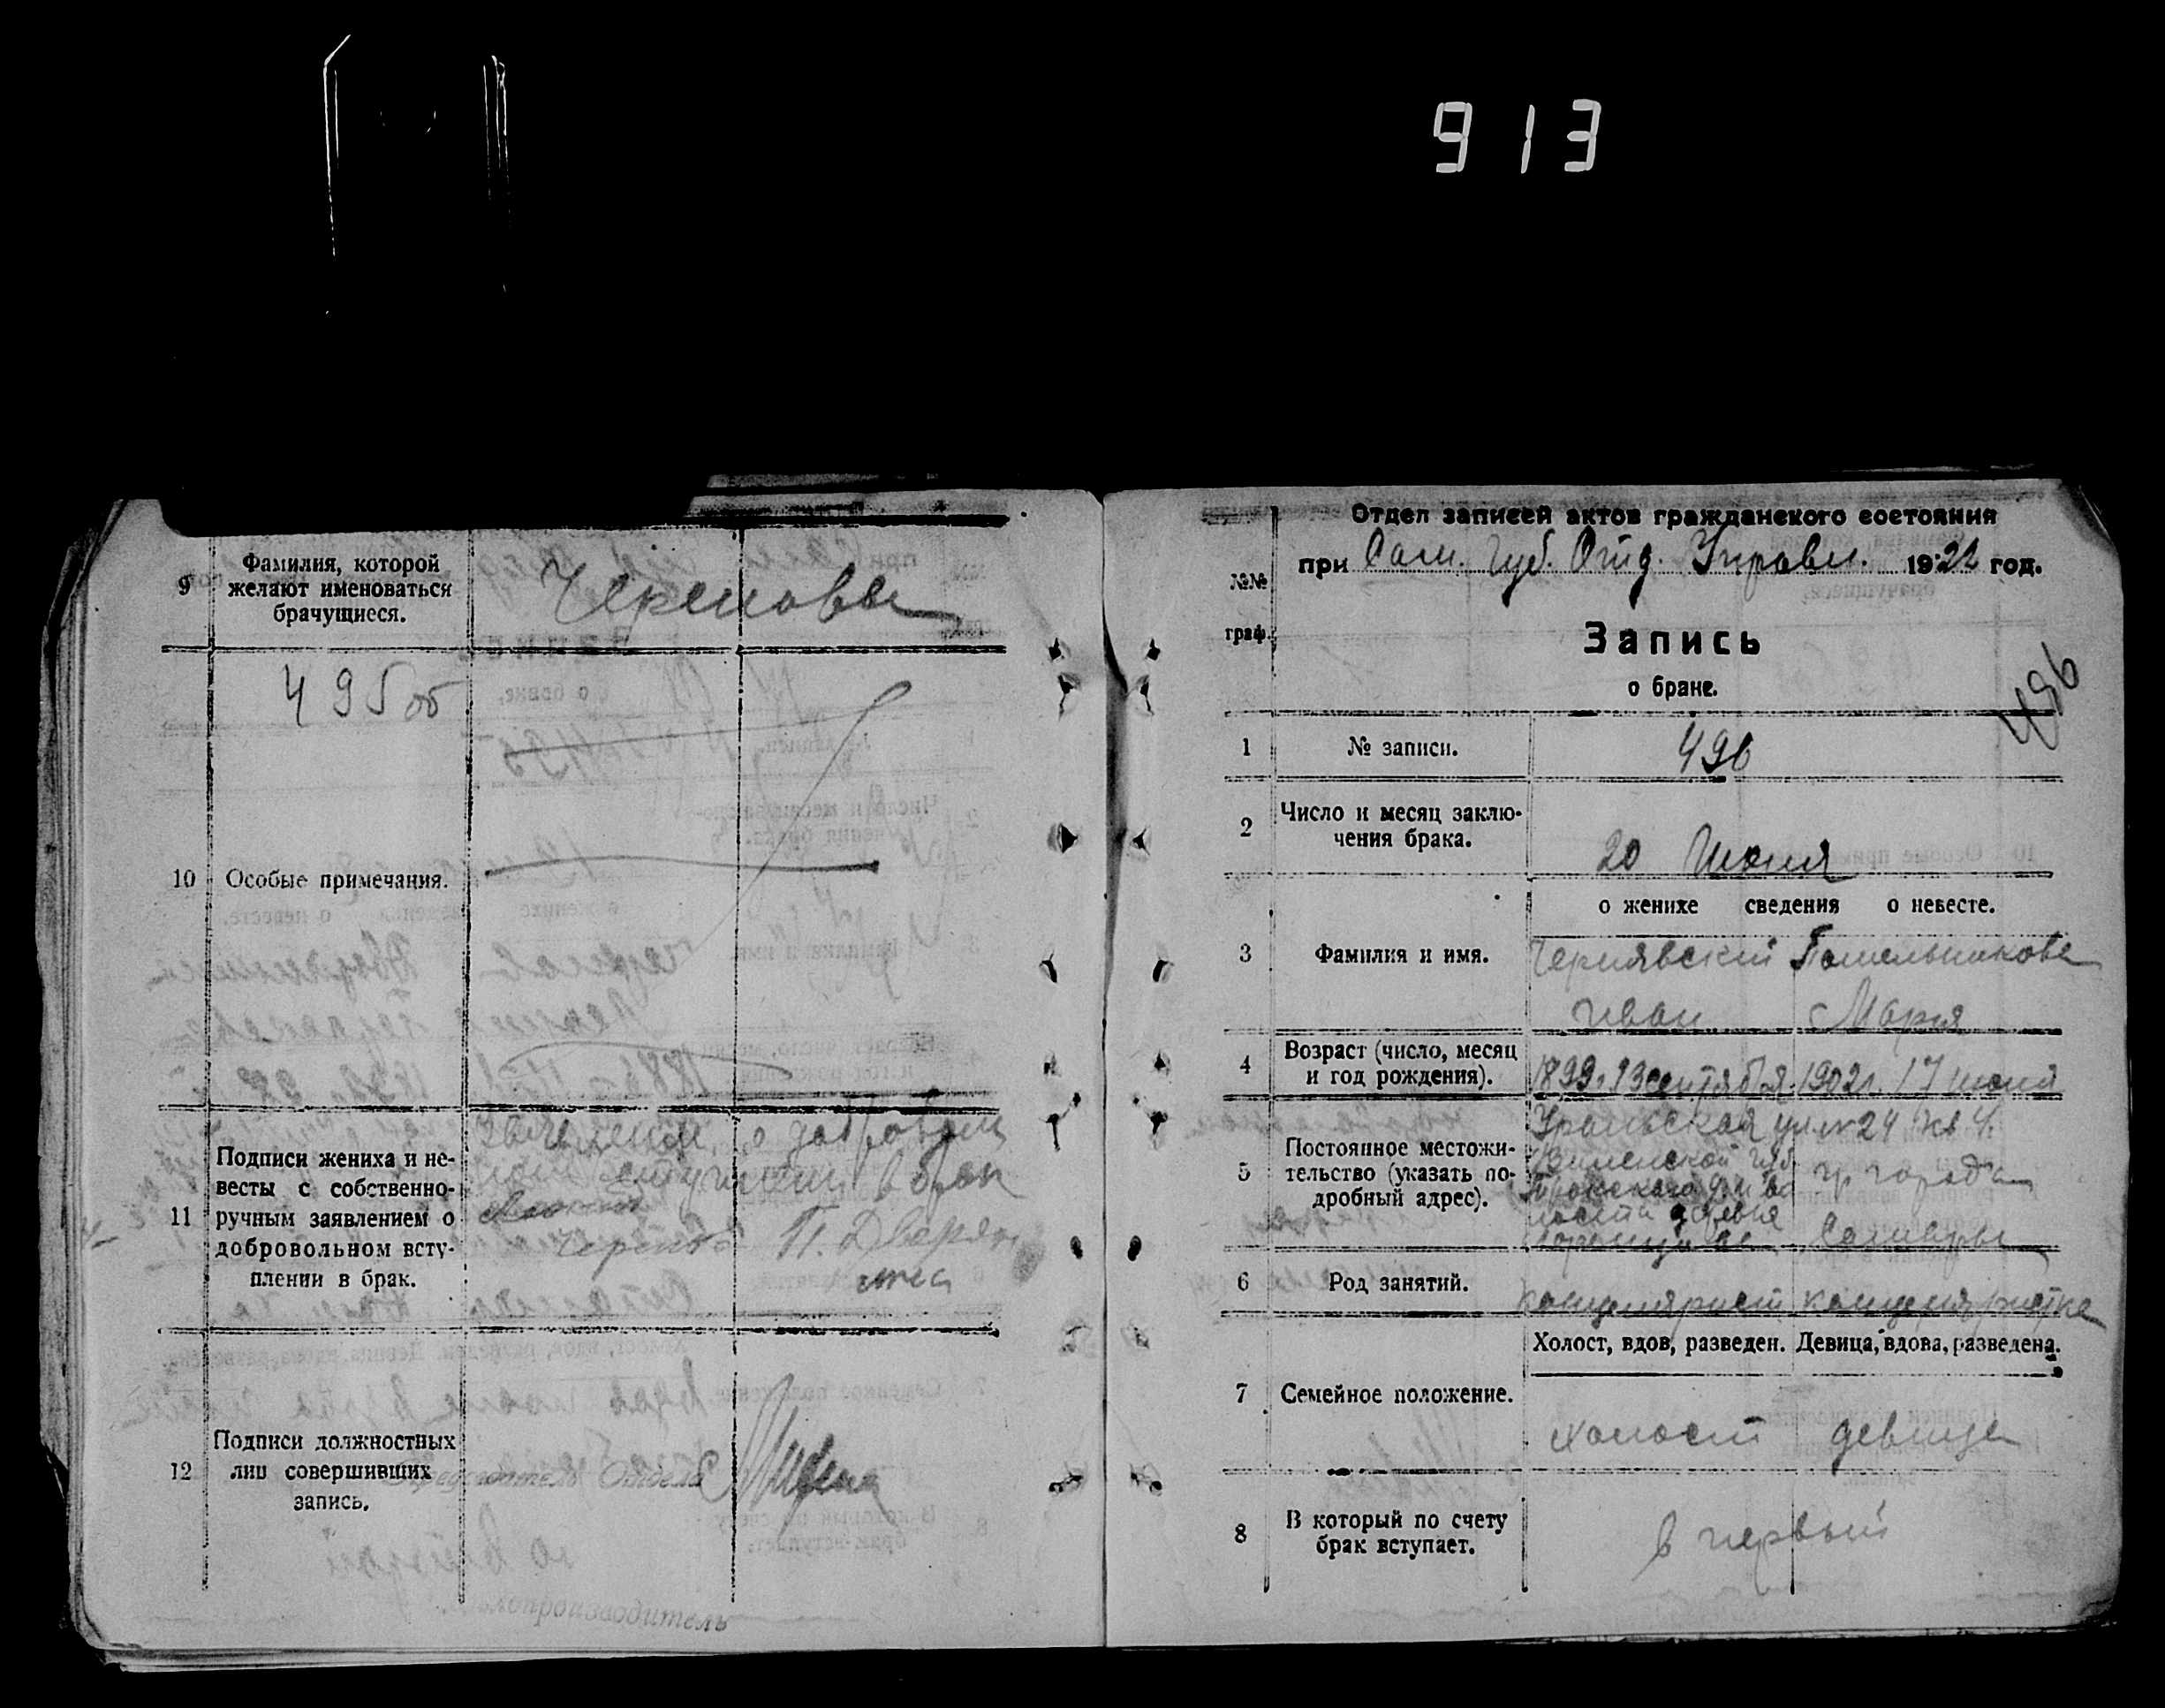 913
9
Фамилия, которой
желают именоваться
брачущиеся.
Череповы
495об
10
Особые примечания.
11
Подписи жениха и не-
весты с собственно-
ручным заявлением о
добровольном всту-
плении в брак.
о
в брак
П. Дворян
12
Подписи должностных
лиц совершивших
запись.
Отдела
Отдел записей актов гражданского состояния
при Сам. Губ. Отд. Управл. 1922 год.
№№
граф.
Запись
о браке.
496
1
№ записи.
496
2
Число и месяц заклю-
чения брака.
20 Июня
о женихе сведения о невесте.
3
Фамилия и имя.
Чернявский Помельникова
Иван Мария
4
Возраст (число, месяц
и год рождения).
1899. 13 сентября. 1902г. 17 июня
5
Постоянное местожи-
тельство (указать по-
дробный адрес).
Уральская ул № 24 кв 4.
Виленской губ.
гр. города
деревня
Самары
6
Род занятий.
канцелярист канцеляристка
Холост, вдов, разведен. Девица, вдова, разведена.
7
Семейное положение.
холост девица
8
В который по счету
брак вступает.
в первый